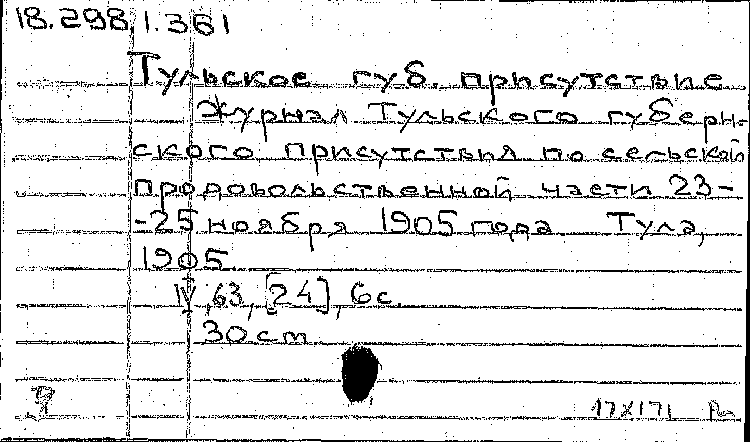 18.298.1.361
Тульское губ. присутствие
Журнал Тульского губерн-
ского присутствия по сельской
продовольственной части 23-
-25 ноября 1905 года. Тула,
1905.
IV, 63, [24], 6 с.
30 cm
17XI71